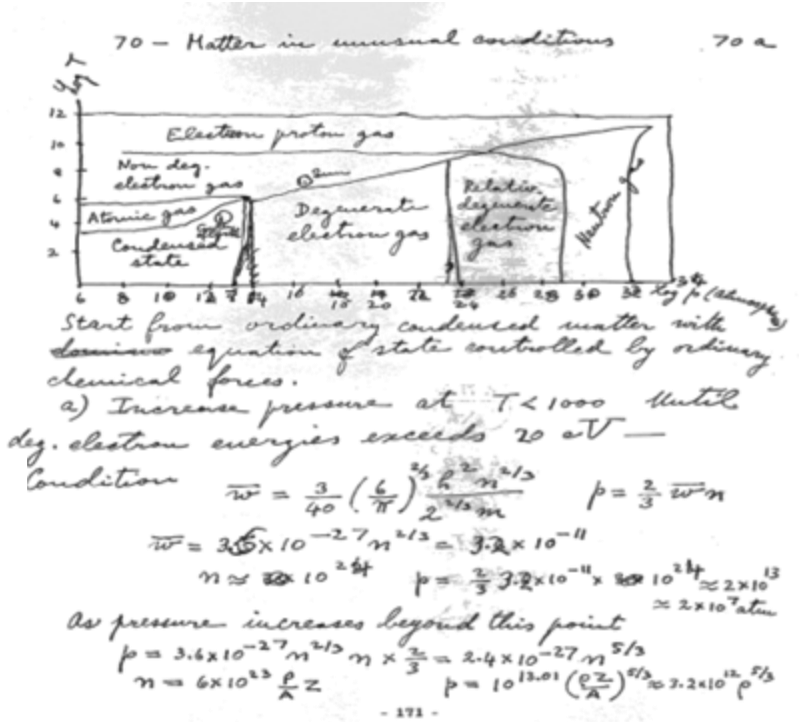 70 — Matter in unusual conditions 70 a
log T
12
10
8
6
4
2
Electron proton gas
Non deg.
electron gas
Atomic gas
Condensed
state
Sun
Degenerate
electron gas
Relativ.
degenerate
electron
gas
Neutron gas
6 8 10 12 14 16 18 20 22 24 26 28 30 32 34 log p (atmospheres)
Start from ordinary condensed matter with
equation of state controlled by ordinary
chemical forces.
a) Increase pressure at T < 1000 Until
deg. electron energies exceeds 20 eV —
Condition w̅ = 3/40 (6/π)^2/3 h^2 n^2/3 / 2^2/3 m p = 2/3 w̅ n
w̅ = 3.6 × 10^-27 n^2/3 = 3.2 × 10^-11
n ≈ 10^24 p = 2/3 3.2 × 10^-11 × 10^24 ≈ 2×10^13
≈ 2×10^7 atm
As pressure increases beyond this point
p = 3.6×10^-27 n^2/3 n × 2/3 = 2.4×10^-27 n^5/3
n = 6×10^23 ρ/A Z p = 10^13.01 (ρZ/A)^5/3 ≈ 3.2×10^12 ρ^5/3
- 171 -